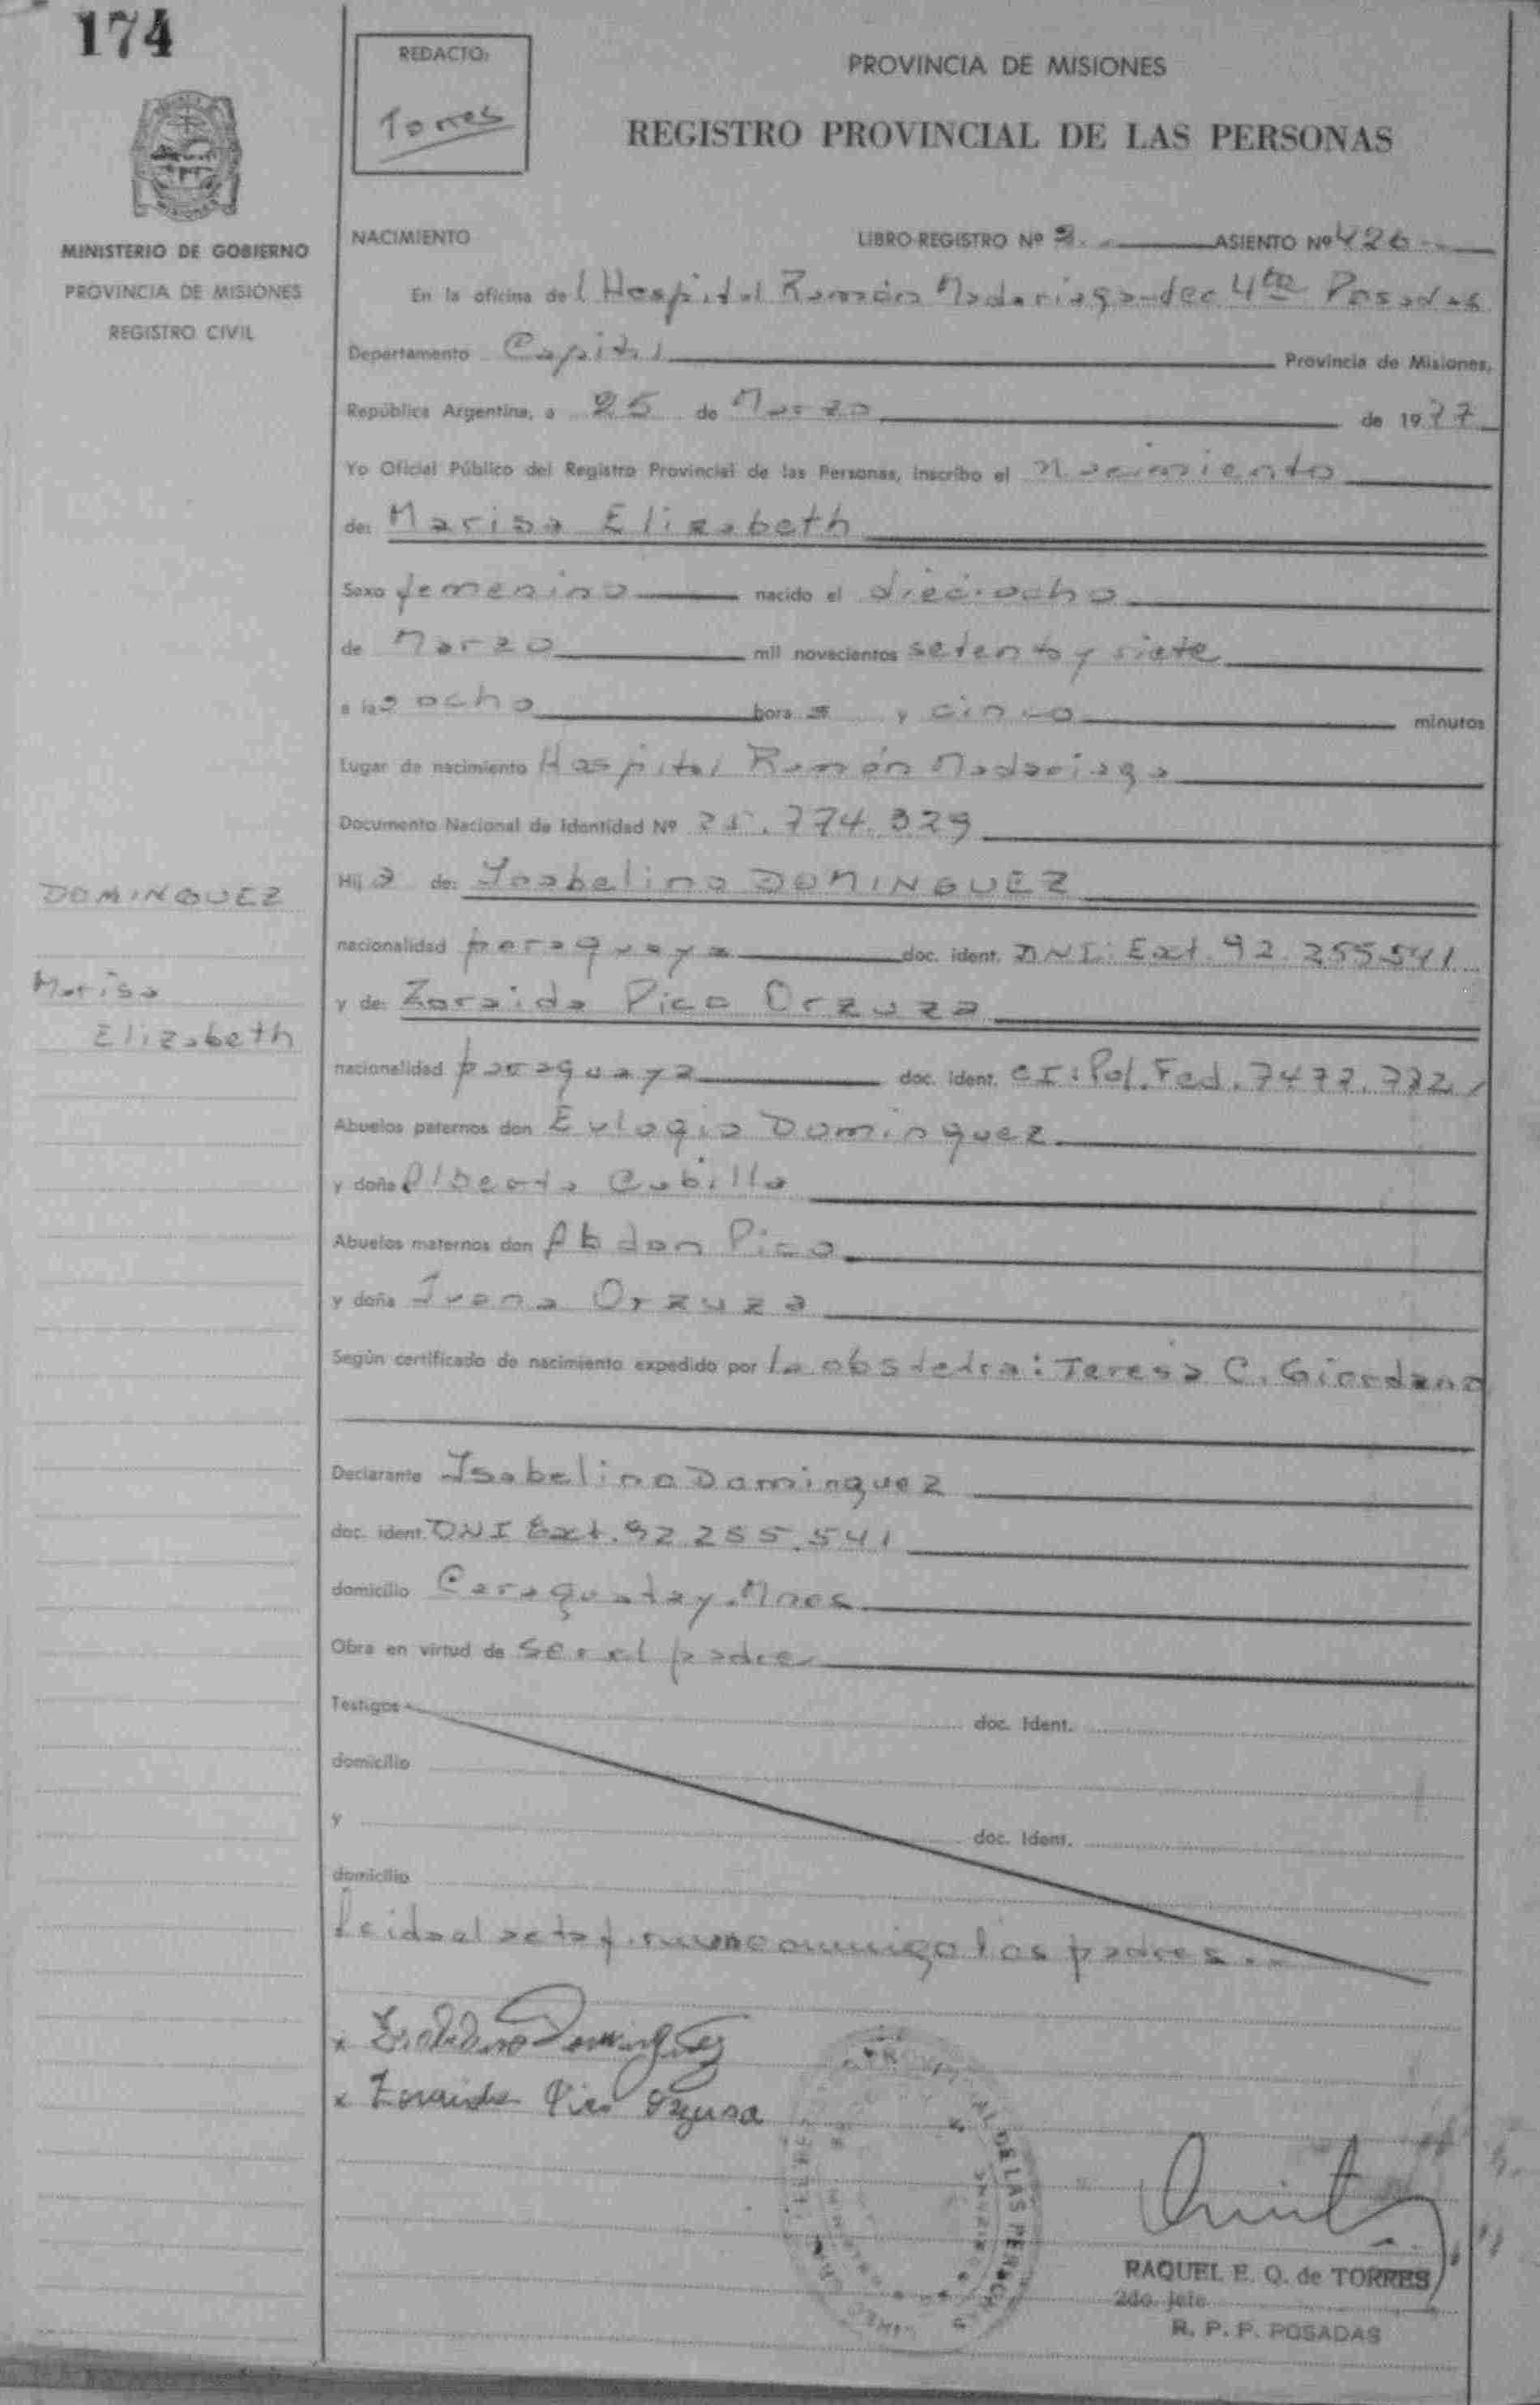 174
REDACTO:
Torres
PROVINCIA DE MISIONES
REGISTRO PROVINCIAL DE LAS PERSONAS
MINISTERIO DE GOBIERNO
PROVINCIA DE MISIONES
REGISTRO CIVIL
NACIMIENTO LIBRO-REGISTRO Nº ASIENTO Nº 426
En la oficina del Hospital Ramón Madariaga-dec 4ta Posadas
Departamento Capital Provincia de Misiones,
República Argentina, a 25 de Marzo de 1977
Yo Oficial Público del Registro Provincial de las Personas, inscribo el Nacimiento
de: Marisa Elizabeth
Sexo femenino nacido el dieciocho
de Marzo mil novecientos setenta y siete
a las ocho horas y cinco minutos
Lugar de nacimiento Hospital Ramón Madariaga
Documento Nacional de Identidad Nº 25.774.329
Hija de: Isabelino DOMINGUEZ
DOMINGUEZ
nacionalidad paraguaya doc. ident. DNI: Ext. 92.255.541
Marisa
Elizabeth
y de: Zoraida Pico Orzuza
nacionalidad paraguaya doc. ident. CI: Pol. Fed. 7477.772
Abuelos paternos don Eulogio Dominguez
y doña Alberta Cubilla
Abuelos maternos don Abdon Pico
y doña Juana Orzuza
Según certificado de nacimiento expedido por la obstetra: Teresa C. Giordano
Declarante Isabelino Dominguez
doc. ident. DNI Ext. 92.255.541
domicilio Caraguatay-Mnes
Obra en virtud de ser el padre
Testigos doc. Ident.
domicilio
y doc. Ident.
domicilio
Leida el acta firman conmigo los padres..
x Isabelino Dominguez
x Zoraida Pico Orzuza
DE LAS PERSONAS
RAQUEL E. Q. de TORRES
2do. Jefe
R. P. P. POSADAS